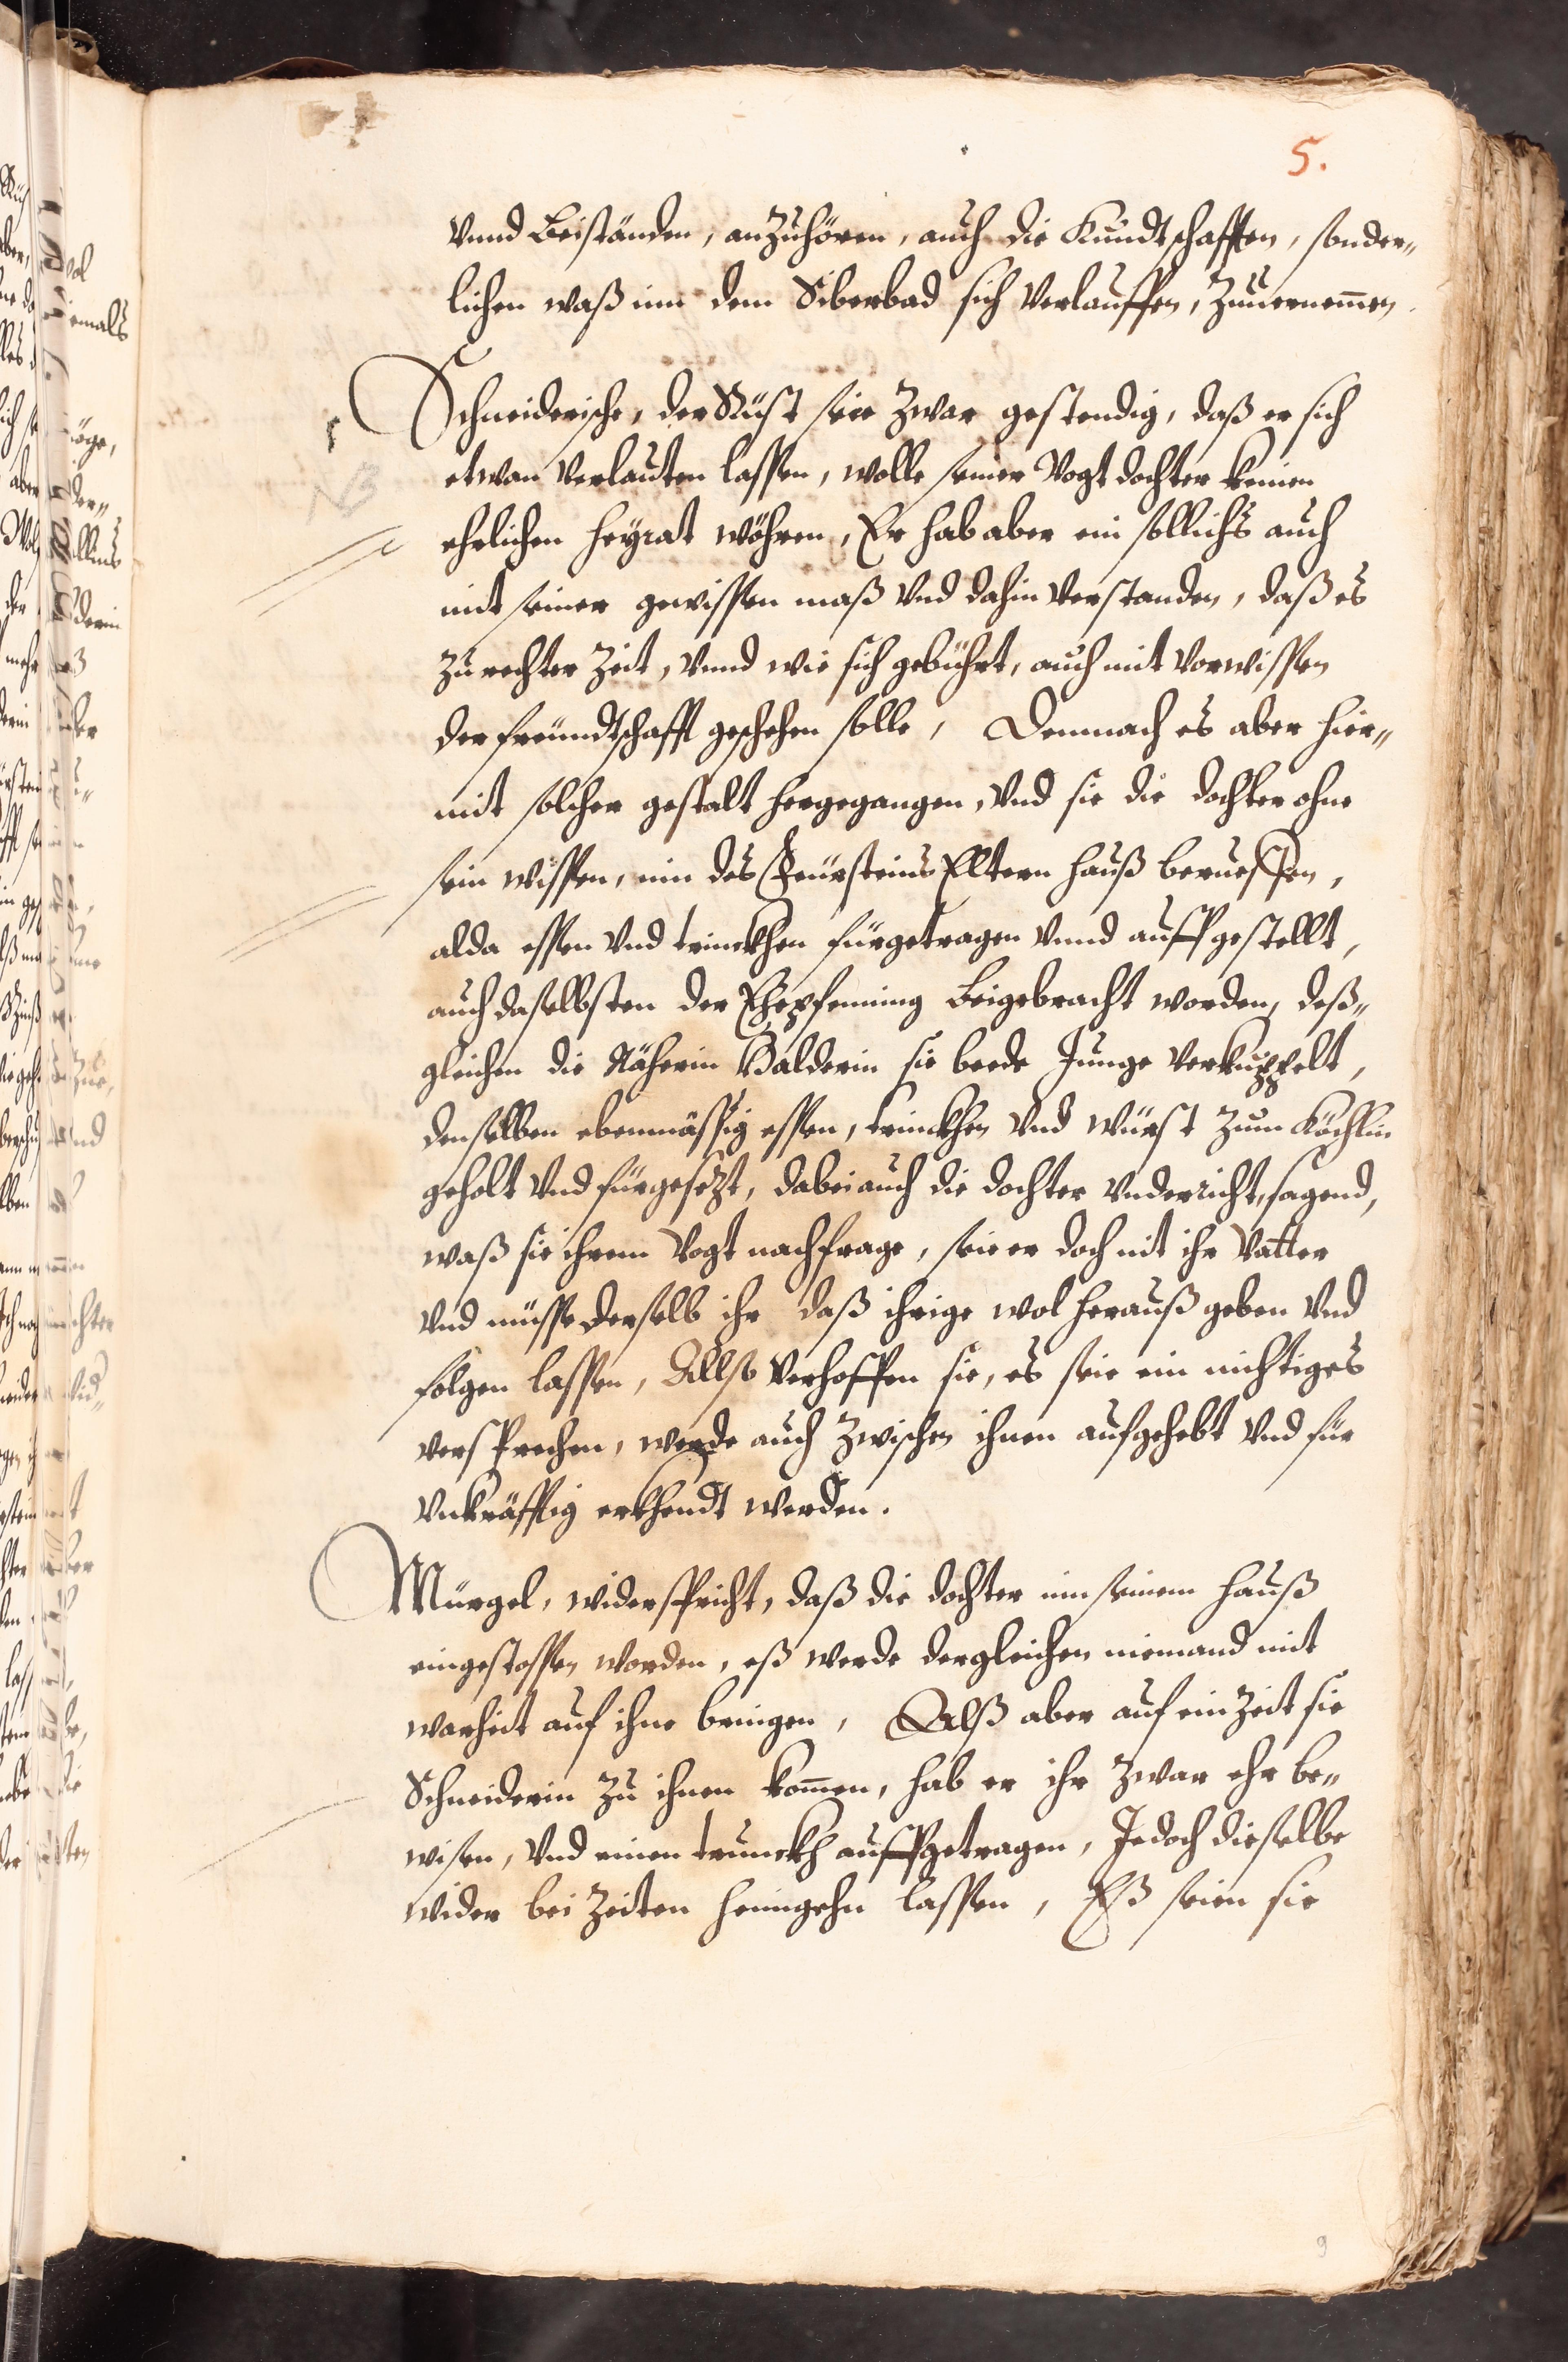 5.
Vnnd Beiständen, anzuhören, auch die Kundtschafften, sonder„
lichen waß inn dem Biberbad sich Verlauffen, Zuuernem̄en.
Schneiderische, der Rüst seie Zwar gestendig, daß er sich
NB
etwan Verlauten lassen, wolle seiner Vogt dochter keinen
ehrlichen heyrat wöhren, Er hab aber ein sollichs auch
mit seiner gewissen maß Vnd dahin Verstanden, daß es
zu rechter Zeit, Vnnd wie sich gebührt, auch mit Vorwissen
der freündtschafft geschehen solle, Demnach es aber hier„
mit solcher gestalt hergegangen, Vnd sie die dochter ohne
sein wissen, inn des Feürsteins Elltern hauß berueffen,
alda essen Vnd trinckhen fürgetragen Vnnd auffgestellt,
auch daselbsten der Ehepfenning Beigebracht worden, deß„
gleichen die Näherin Balderin sie beede Junge Verkuppelt,
denselben ebenmässig essen, trinckhen Vnd würst Zum Köchlin
geholt Vnd fürgesetzt, dabei auch die dochter Vnderricht, sagend,
waß sie ihrem Vogt nachfrage, seie er doch nit ihr Vatter
Vnd müsse derselb ihr daß ihrige wol herauß geben Vnd
folgen lassen, Allso Verhoffen sie, es seie ein nichtiges
versprechen, werde auch Zwischen ihnen aufgehebt Vnd für
Vnkräfftig erkhendt werden.
Mürgel, widerspricht, daß die dochter inn seinem hauß
eingestossen worden, eß werde dergleichen niemand mit
warheit auf ihne bringen, Alß aber auf ein Zeit sie
Schneiderin zu ihnen kom̄en, hab er ihr Zwar ehr be„
wisen, Vnd einen trunckh auffgetragen, Jedoch dieselbe
wider bei Zeiten heimgehn lassen, Eß seien sie
9